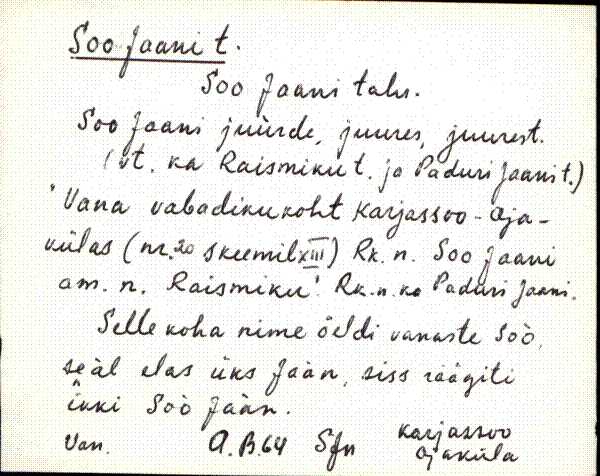 Soo Jaani t.
Soo Jaani talu.
Soo Jaani juurde, juures, juurest.
(vt. ka Raismiku t. ja Paduri Jaani t.)
"Vana vabadikukoht Karjassoo-Oja-
külas (nr. 20 skeemil XIII) Rk. n. Soo Jaani
am. n. Raismiku". Rk. n. ka Paduri Jaani.
Selle koha nime öeldi vanaste Sòò,
seàl elas üks Jààn, siss räägiti
ikki Sòò Jààn.
Van. A.B. 64 Sfn Karjassoo
Ojaküla